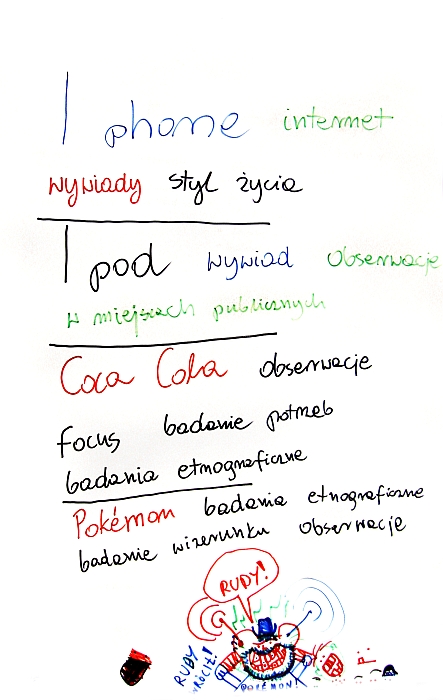 I phone internet
wywiady styl życia
I pod wywiad obserwacje
w miejscach publicznych
Coca Cola obserwacje
focus badanie potrzeb
badania etnograficzne
Pokémon badania etnograficzne
badanie wizerunku obserwacje
RUDY!
RUDY
WRÓĆ!
POKEMON